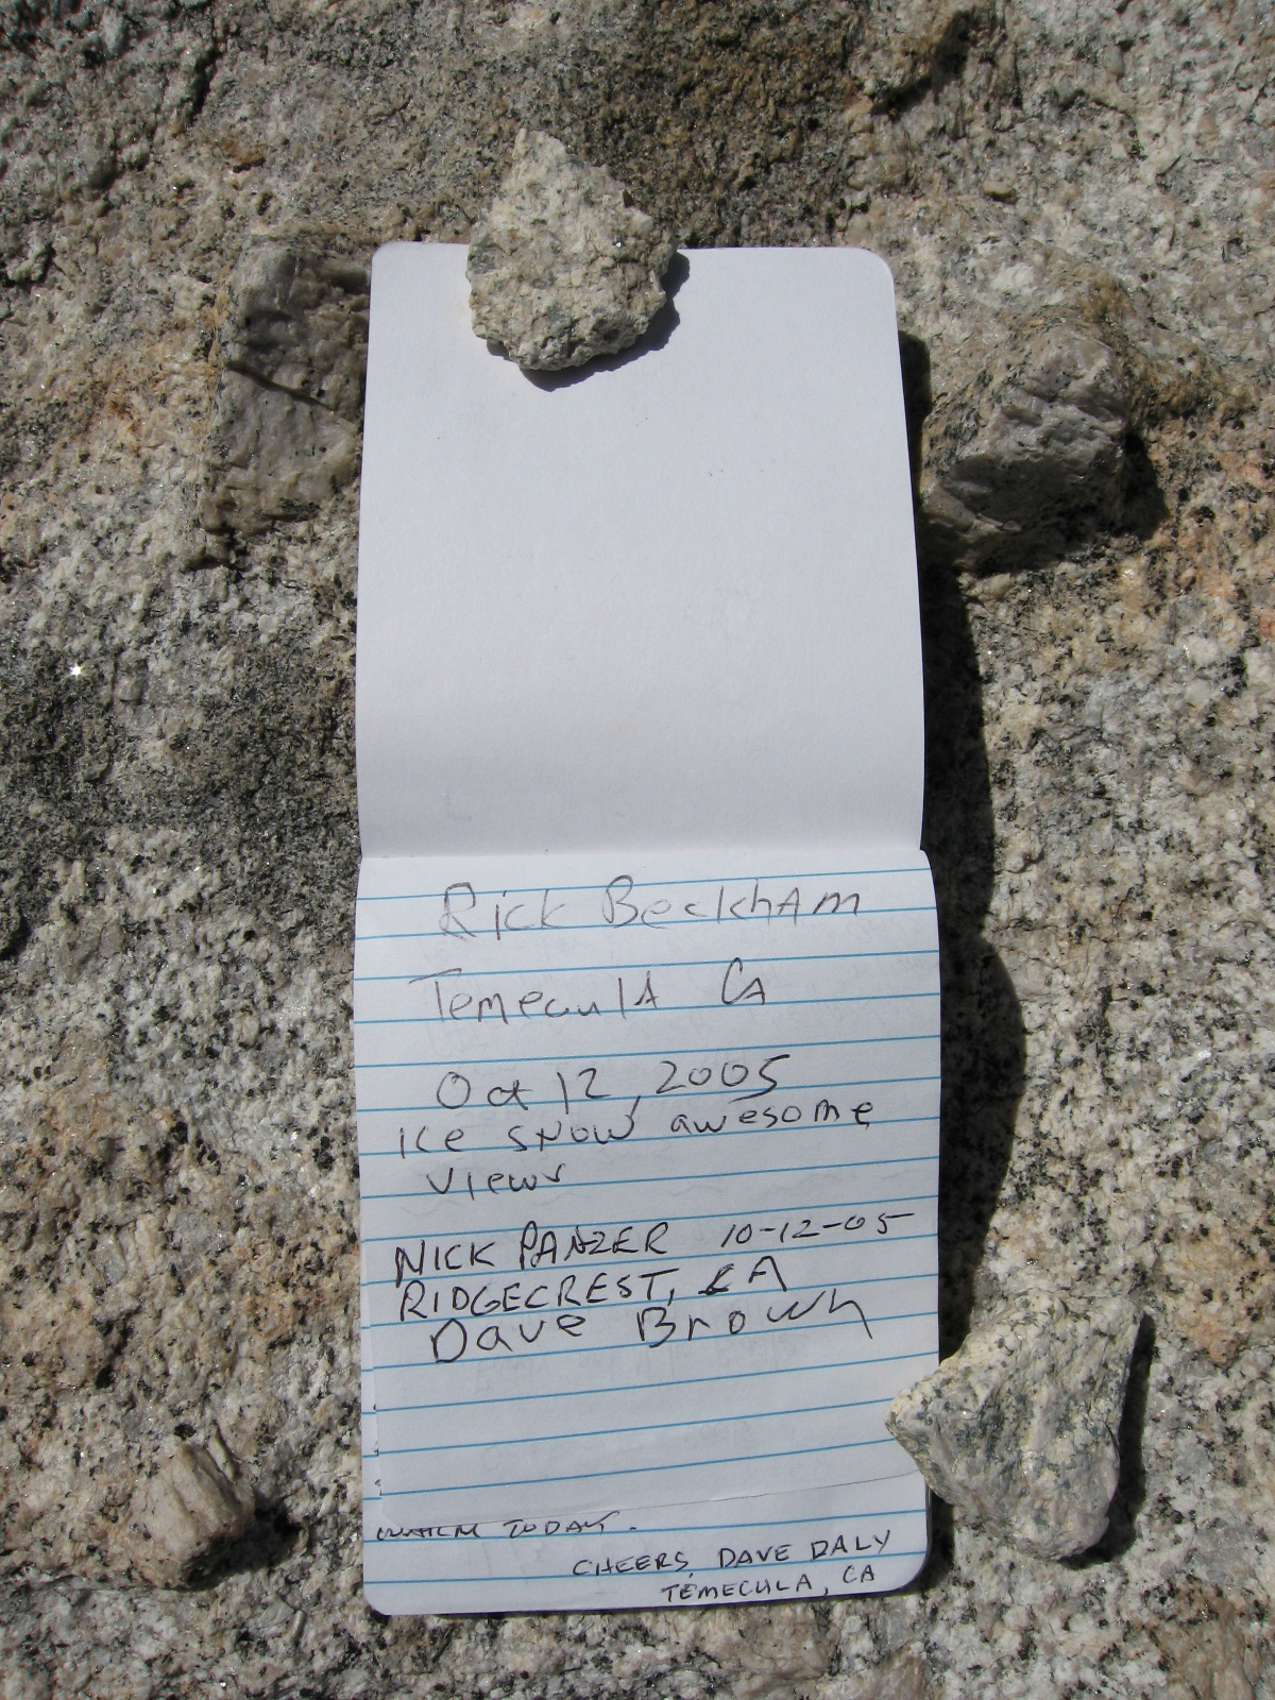 Rick BeckhAm
TemeculA CA
Oct 12, 2005
ice snow awesome
views
NICK PANZER 10-12-05
RIDGECREST, CA
Dave Brown
TODAY.
CHEERS, DAVE DALY
TEMECULA, CA